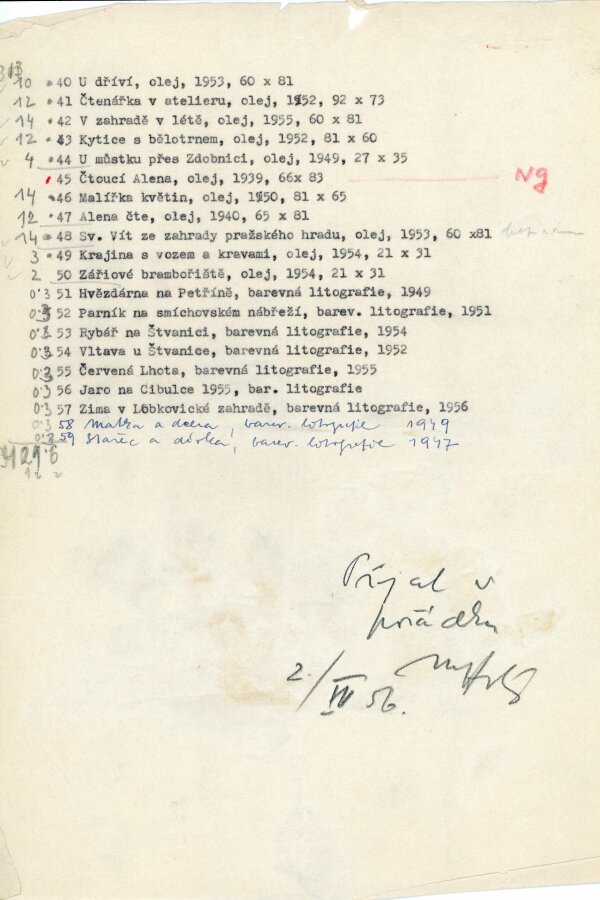 10 40 U dříví, olej, 1953, 60 x 81
12 41 Čtenářka v atelieru, olej, 1952, 92 x 73
14 42 V zahradě v létě, olej, 1955, 60 x 81
12 43 Kytice s bělotrnem, olej, 1952, 81 x 60
4 44 U můstku přes Zdobnici, olej, 1949, 27 x 35
45 Čtoucí Alena, olej, 1939, 66x 83 Ng
14 46 Malířka květin, olej, 1950, 81 x 65
12 47 Alena čte, olej, 1940, 65 x 81
14 48 Sv. Vít ze zahrady pražského hradu, olej, 1953, 60 x81
3 49 Krajina s vozem a kravami, olej, 1954, 21 x 31
2 50 Zářiové brambořiště, olej, 1954, 21 x 31
0.3 51 Hvězdárna na Petříně, barevná litografie, 1949
0.3 52 Parník na smíchovském nábřeží, barev. litografie, 1951
0.3 53 Rybář na Štvanici, barevná litografie, 1954
0.3 54 Vltava u Štvanice, barevná litografie, 1952
0.3 55 Červená Lhota, barevná litografie, 1955
0.3 56 Jaro na Cibulce 1955, bar. litografie
0.3 57 Zima v Lobkovické zahradě, barevná litografie, 1956
0.3 58 Matka a dcera, barev. litografie 1949
0.3 59 Stařec a dívka, barev. litografie 1947
Přijal v
pořádku
2./IV 56.